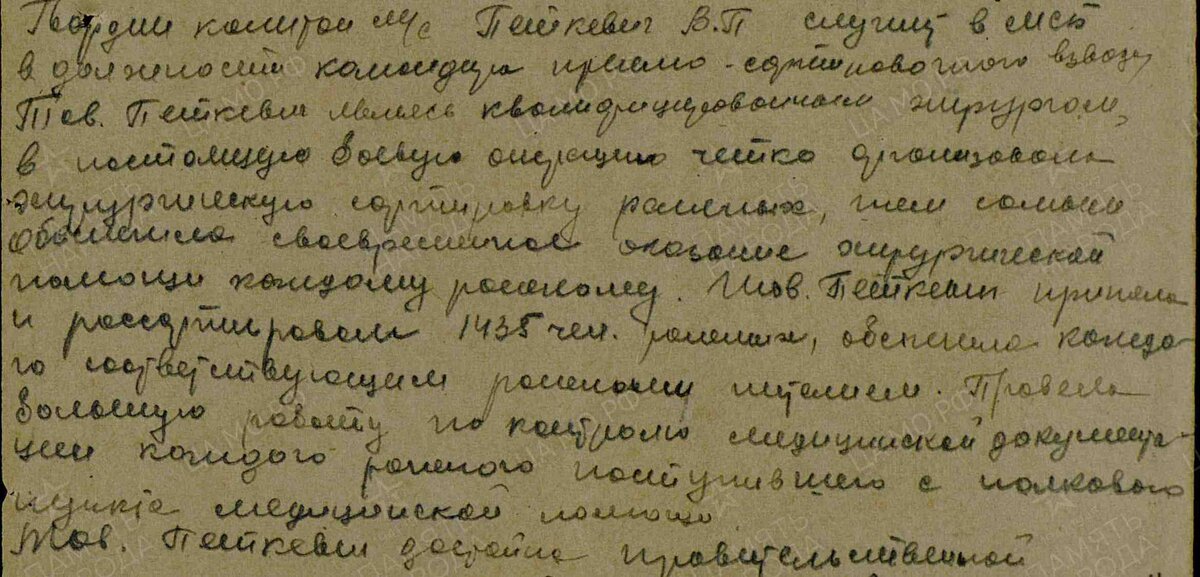 Гвардии капитан м/с Петкевич В.П служит в МСБ
в должности командира приемо-сортировочного взвода,
Тов. Петкевич являясь квалифицированным хирургом,
в настоящую боевую операцию четко организовала
хирургическую сортировку раненых, тем самым
обеспечила своевременное оказание хирургической
помощи каждому раненому. Тов. Петкевич приняла
и рассортировала 1435 чел. раненых, обеспечила каждо-
го соответствующим раненому питанием. Провела
большую работу по контролю медицинской документа-
ции каждого раненого поступившего с полкового
пункта медицинской помощи
Тов. Петкевич достойна правительственной